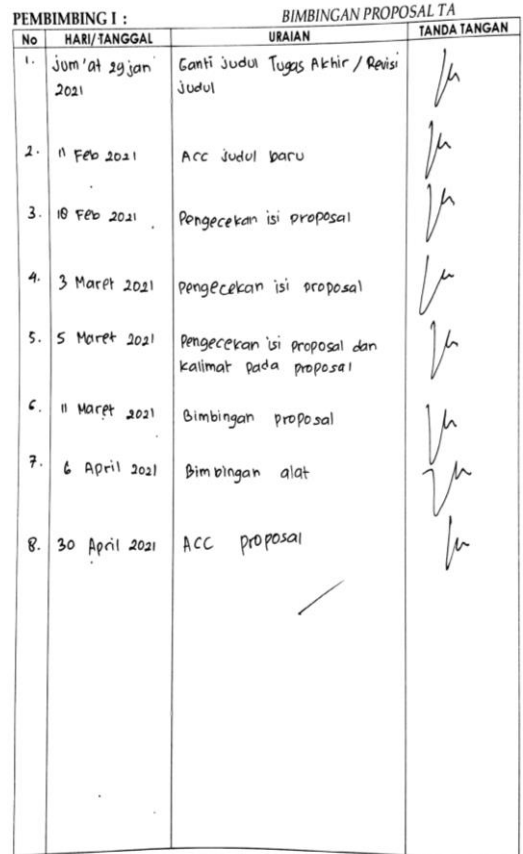 PEMBIMBING I : BIMBINGAN PROPOSAL TA
No HARI/TANGGAL URAIAN TANDA TANGAN
1. Jum'at 29 jan Ganti Judul Tugas Akhir / Revisi
2021 Judul
2. 11 Feb 2021 Acc judul baru
3. 18 Feb 2021 Pengecekan isi proposal
4. 3 Maret 2021 Pengecekan isi proposal
5. 5 Maret 2021 Pengecekan isi proposal dan
kalimat pada proposal
6. 11 Maret 2021 Bimbingan proposal
7. 6 April 2021 Bimbingan alat
8. 30 April 2021 ACC proposal